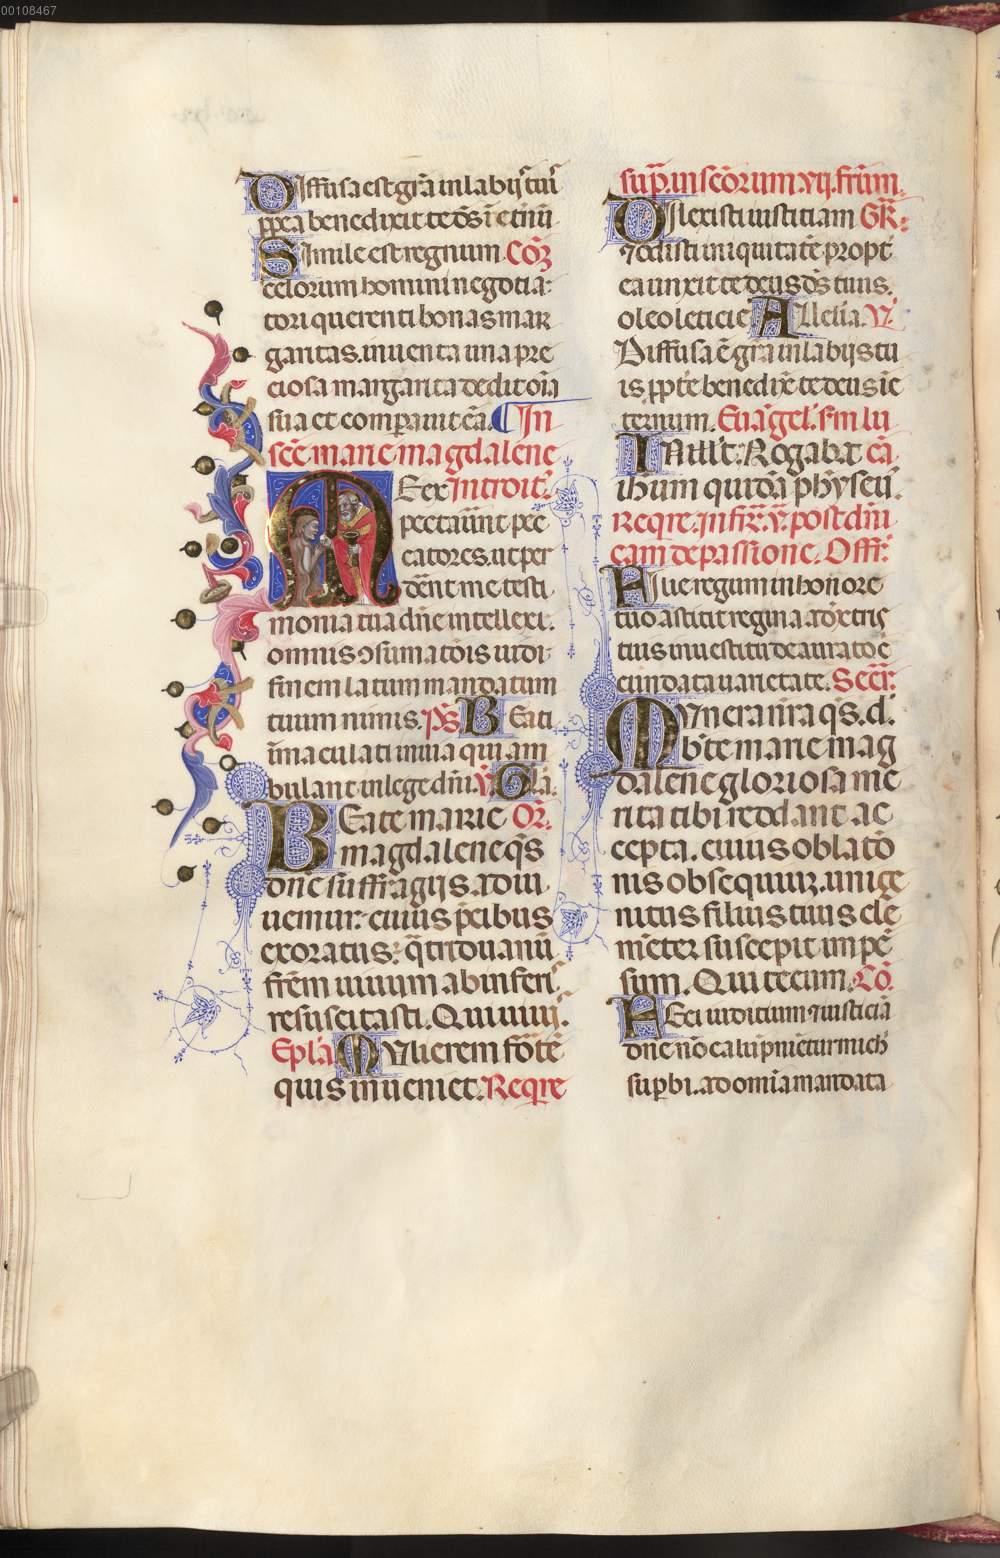 00108467
Diffusa est gr̄a in labijs tuis
ppea benedixit te ds̄ ī et̄nū
Simile est regnum Cōȝ
celorum homini negotia:
tori querenti bonas mar
garitas. inuenta una pre
ciosa margarita dedit oīa
sua et comparauit eā. In
scē marie magdalene
Me ex Introit̄.
pectauūt pec
catores. ut per
dēnt me testi
monia tua dn̄e intellexi.
omnis ꝯsumatōis uidi
finem latum mandatum
tuum nimis. Ps̄ Beati
īmaculati in uia qui am
bulant in lege dn̄i. ℣ Gl̄a.
Beate marie Or̄.
magdalene qs̄
dn̄e suffragijs adiu
uemur: cuius p̄cibus
exoratus: q̄triduanū
frēm uiuum ab inferis
resuscitasti. Qui uiuis.
Epl̄a Mulierem fortē
quis inueniet. Reqre
sup̄. in sc̄orum. vij. frūm.
Dilexisti iustitiam GR̄.
⁊ odisti iniquitatē propt̄
ea unxit te deus ds̄ tuus.
oleo leticie Alleluia. ℣.
Diffusa ē gr̄a in labijs tu
is ꝓpt̄e benedix̄ te deus ī e
ternum. Euāgel. s̄m lu
In ill̄ t̄. Rogab̄t eā
ihūm quidā phyſeū.
Reqre. In fr̄. ℣. post dn̄i
cam de passione. Off̄.
Filie regum in honore
tuo astitit regina a dextris
tuis in uestitu deaurato c̄
cundata uarietate. Secr̄.
Munera nr̄a qs̄. d.
b̄te marie mag
dalene gloriosa me
rita tibi reddant ac
cepta. cuius oblatō
nis obsequium. unige
nitus filius tuus cle
mēter suscepit impē
sum. Qui tecum. Cō.
Feci iudicium ⁊ iusticiā
dn̄e nō calūpnietur mich
sup̄bi. ad omia mandata